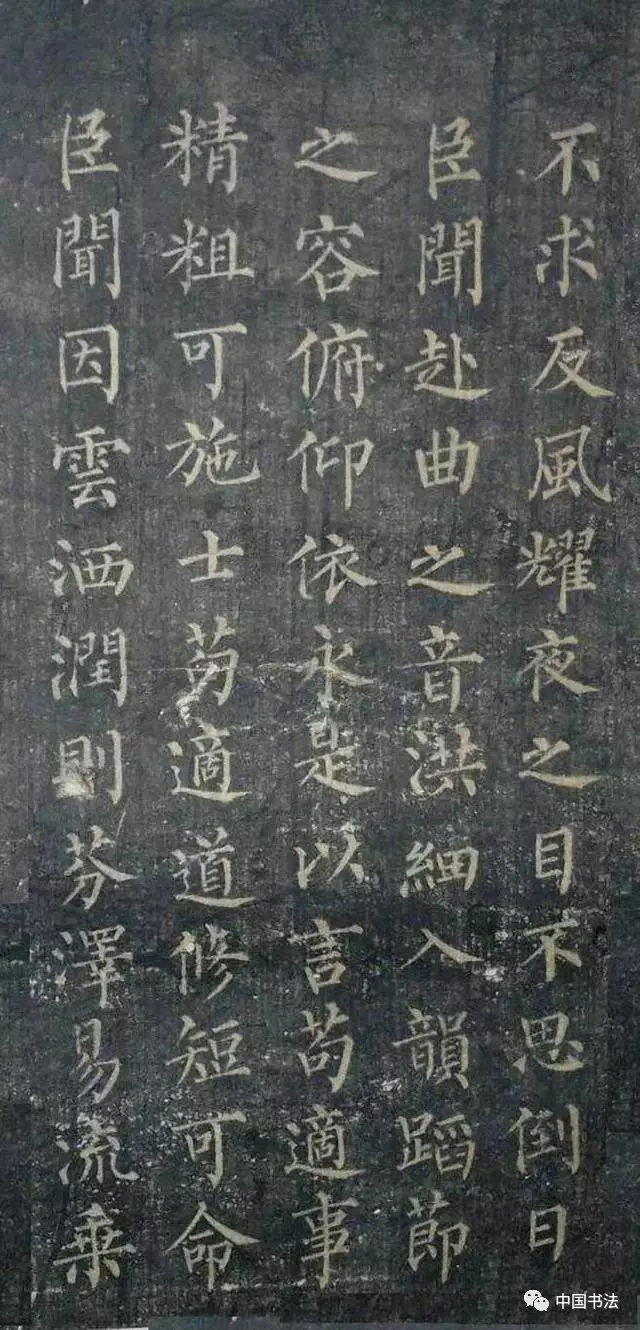 不求反風耀夜之目不思倒日
臣聞赴曲之音洪細入韻蹈節
之容俯仰依永是以言苟適事
精粗可施士苟適道修短可命
臣聞因雲洒潤則芬澤易流乗
中国书法